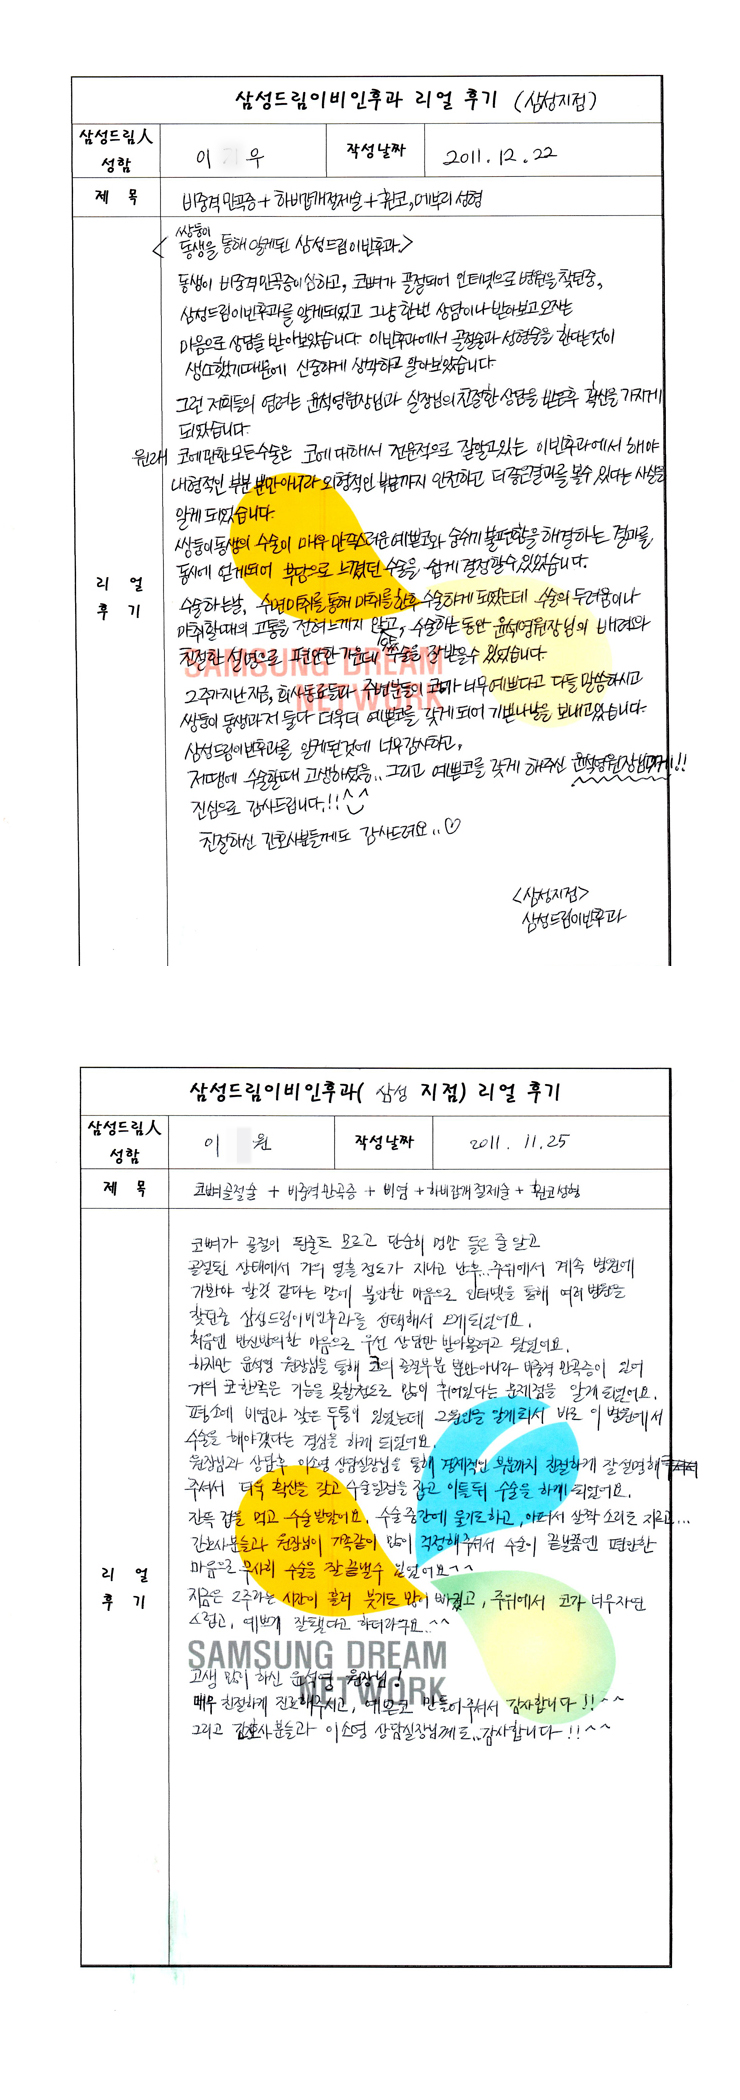 삼성드림이비인후과 리얼 후기 (삼성지점)
삼성드림人
성함
이 우
작성날짜
2011. 12. 22
제 목
비중격만곡증 + 하비갑개절제술 + 휜코, 매부리성형
쌍둥이
<동생을 통해 알게된 삼성드림이빈후과>
동생이 비중격만곡증이심하고, 코뼈가 골절되어 인터넷으로 병원을 찾던중,
삼성드림이빈후과를 알게되었고 그냥 한번 상담이나 받아보고오자는
마음으로 상담을 받아보았습니다. 이빈후과에서 골절술과 성형술을 한다는것이
생소했기때문에 신중하게 생각하고 알아보았습니다.
그런 저희들의 염려는 윤석영원장님과 실장님의친절한 상담을 받은후 확신을 가지게
되었습니다.
원래 코에관한모든수술은 코에대해서 전문적으로 잘알고있는 이빈후과에서 해야
내형적인 부분 뿐만아니라 외형적인 부분까지 안전하고 더좋은결과를 볼수있다는 사실을
알게 되었습니다.
쌍둥이동생의 수술이 매우 만족스러운 예쁜코와 숨쉬기 불편함을 해결하는 결과를
동시에 얻게되어 부담으로 느꼈던 수술을 쉽게 결정할수있었습니다.
수술하는날, 수면마취를통해 마취를한후 수술하게 되었는데 수술의 두려움이나
마취할때의 고통을 전혀느끼지 않고, 수술하는 동안 윤석영원장님의 배려와
친절한 설명으로 편안한 가운데 수술을 잘받을수있었습니다.
2주가지난지금, 회사동료들과 주변분들이 코가 너무예쁘다고 다들 말씀하시고
쌍둥이 동생과저 둘다 더욱더 예쁜코를 갖게되어 기쁜나날을 보내고있습니다.
삼성드림이빈후과를 알게된것에 너무감사하고,
저땜에 수술할때 고생하셨을.. 그리고 예쁜코를 갖게 해주신 윤석영원장님께!!
진심으로 감사드립니다.!! ^^
친절하신 간호사분들께도 감사드려요..♡
<삼성지점>
삼성드림이빈후과
리 얼
후 기
SAMSUNG DREAM
NETWORK
삼성드림이비인후과( 삼성 지점) 리얼 후기
삼성드림人
성함
이 원
작성날짜
2011. 11.25
제 목
코뼈골절술 + 비중격만곡증 + 비염 + 하비갑개절제술 + 휜코성형
코뼈가 골절이 된줄도 모르고 단순히 멍만 들은 줄 알고
골절된 상태에서 거의 열흘 정도가 지나고 난후.. 주위에서 계속 병원에
가봐야 할것 같다는 말에 불안한 마음으로 인터넷을 통해 여러 병원을
찾던중 삼성드림이비인후과를 선택해서 오게되었어요.
처음엔 반신반의한 마음으로 우선 상담만 받아볼려고 왔었어요.
하지만 윤석영 원장님을 통해 코의 골절부분 뿐만아니라 비중격 만곡증이 있어
거의 코 한쪽은 기능을 못할정도로 많이 휘어있다는 문제점을 알게되었어요.
평소에 비염과 잦은 두통이 있었는데 그원인을 알게되서 바로 이 병원에서
수술을 해야겠다는 결심을 하게 되었어요.
원장님과 상담후 이소영 상담실장님을 통해 경제적인 부분까지 친절하게 잘설명해
주셔서 더욱 확신을 갖고 수술일정을 잡고 이틀뒤 수술을 하게 되었어요.
잔뜩 겁을 먹고 수술받았어요. 수술중간에 울기도하고, 아파서 살짝 소리도 지르고...
간호사분들과 원장님이 가족같이 많이 걱정해주셔서 수술이 끝날쯤엔 편안한
마음으로 무사히 수술을 잘 끝낼수 있었어요^^
지금은 2주라는 시간이 흘러 붓기도 많이 빠졌고, 주위에서 코가 너무자연
스럽고, 예쁘게 잘됐다고 하더라구요..^^
고생 많이 하신 윤석영 원장님!
매우 친절하게 진료해주시고, 예쁜코 만들어주셔서 감사합니다!!^^
그리고 간호사분들과 이소영 상담실장님께도..감사합니다!!^^
리 얼
후 기
SAMSUNG DREAM
NETWORK